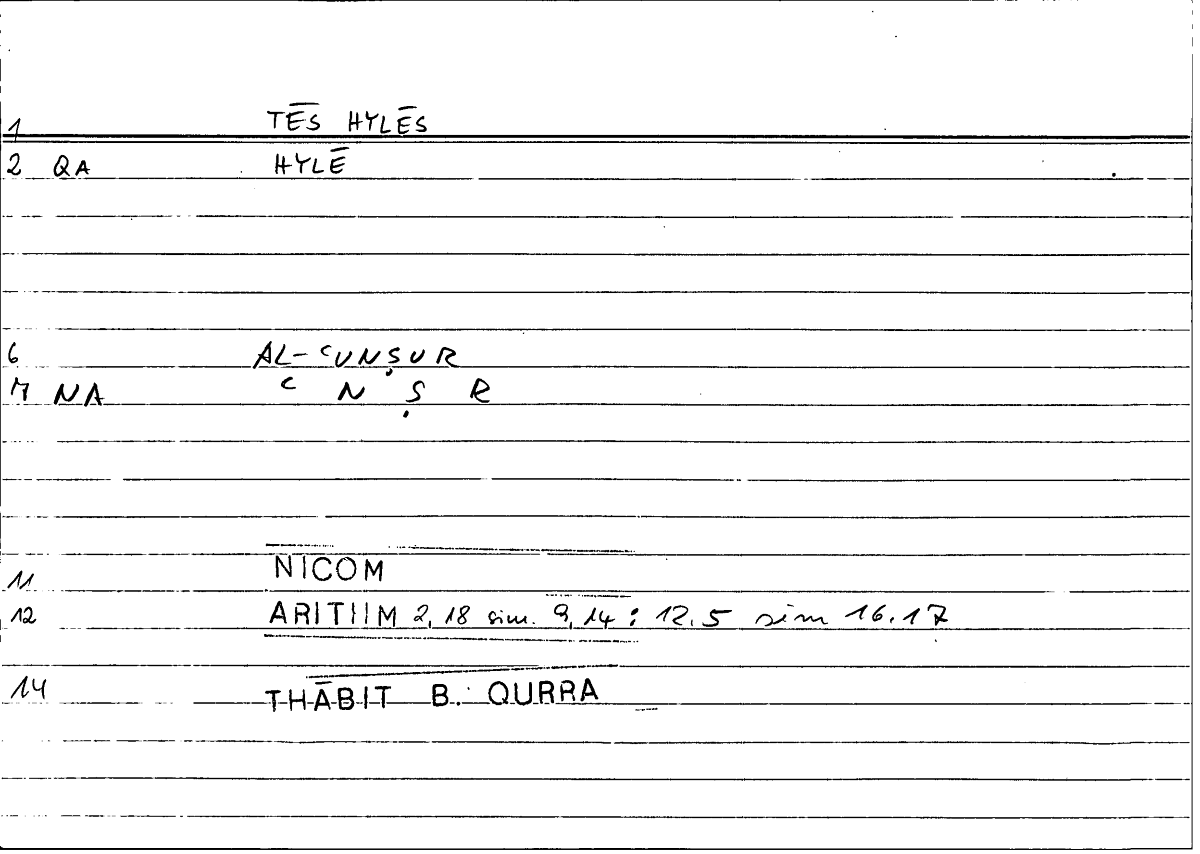 1 TĒS HYLĒS
2 QA HYLĒ
6 AL-ʿUNṢUR
7 NA ʿ N Ṣ R
11 NICOM
12 ARITIIM 2, 18 sim. 9, 14 : 12.5 sim 16.17
14 THĀBIT B. QURRA